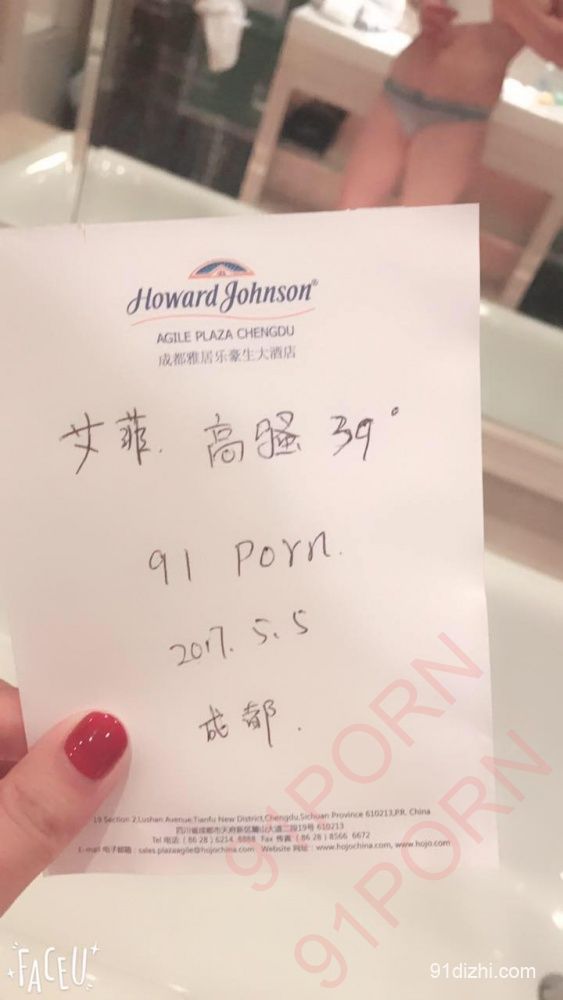 Howard Johnson®
AGILE PLAZA CHENGDU
成都雅居乐豪生大酒店
艾菲. 高骚 39°
91 Porn.
2017. 5. 5
成都.
19 Section 2,Lushan Avenue,Tianfu New District,Chengdu,Sichuan Province 610213,P.R. China
四川省成都市天府新区麓山大道二段19号 610213
Tel 电话: (86 28) 6214 8888 Fax 传真: (86 28) 8566 6672
E-mail 电子邮箱: sales.plazaagile@hojochina.com Website 网址: www.hojochina.com, www.hojo.com
91PORN
91PORN
FACEU
91dizhi.com